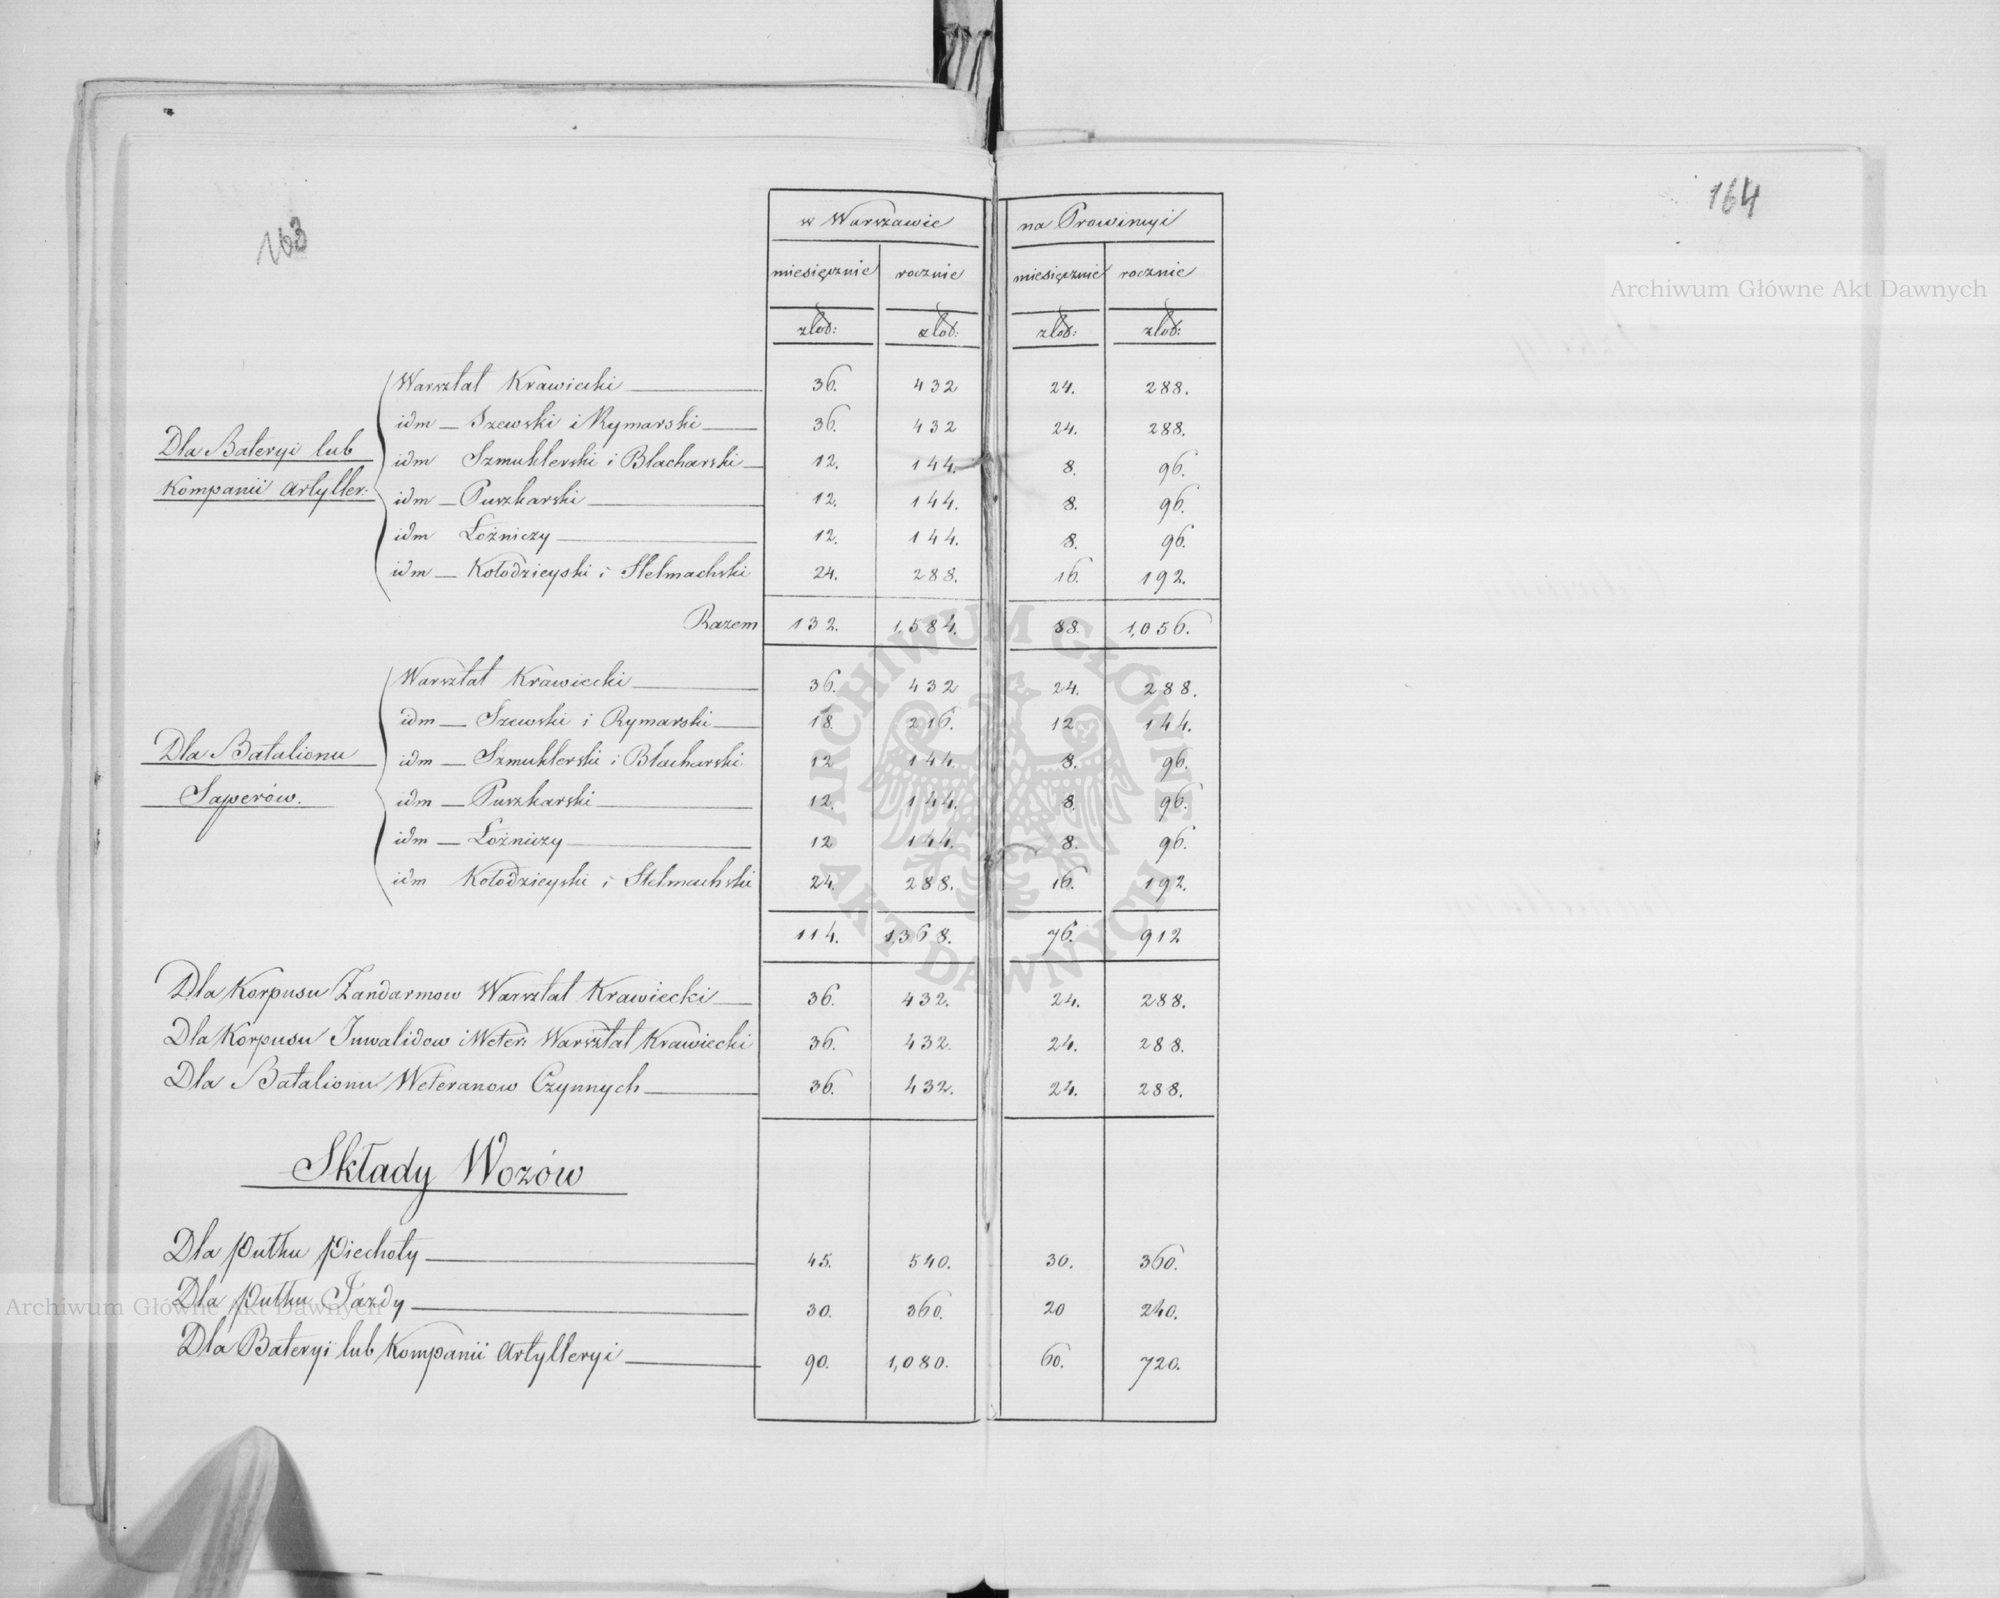 163
164
w Warszawie na Prowincyi
miesięcznie rocznie miesięcznie rocznie
złod: złod: złod: złod:
Dla Bateryi lub
Kompanii Artyller:
Warsztat Krawiecki 36. 432 24. 288.
idm Szewski i Rymarski 36. 432 24. 288.
idm Szmuklerski i Blacharski 12. 144. 8. 96.
idm Puszkarski 12. 144. 8. 96.
idm Łożniczy 12. 144. 8. 96.
idm Kołodzieyski i Stelmachski 24. 288. 16. 192.
Razem 132. 1,584. 88. 1,056.
Dla Batalionu
Saperów.
Warsztat Krawiecki 36. 432 24. 288.
idm Szewski i Rymarski 18. 216. 12 144.
idm Szmuklerski i Blacharski 12 144. 8. 96.
idm Puszkarski 12. 144. 8. 96.
idm Łożniczy 12 144. 8. 96.
idm Kołodzieyski i Stelmachski 24. 288. 16. 192.
114. 1,368. 76. 912
Dla Korpusu Żandarmow Warsztat Krawiecki 36. 432. 24. 288.
Dla Korpusu Inwalidow i Weter: Warsztat Krawiecki 36. 432. 24. 288.
Dla Batalionu Weteranow Czynnych 36. 432. 24. 288.
Składy Wozów
Dla Pułku Piechoty 45. 540. 30. 360.
Dla Pułku Jazdy 30. 360. 20 240.
Dla Bateryi lub Kompanii Artylleryi 90. 1,080. 60. 720.
Archiwum Główne Akt Dawnych
Archiwum Główne Akt Dawnych
ARCHIWUM GŁÓWNE
AKT DAWNYCH